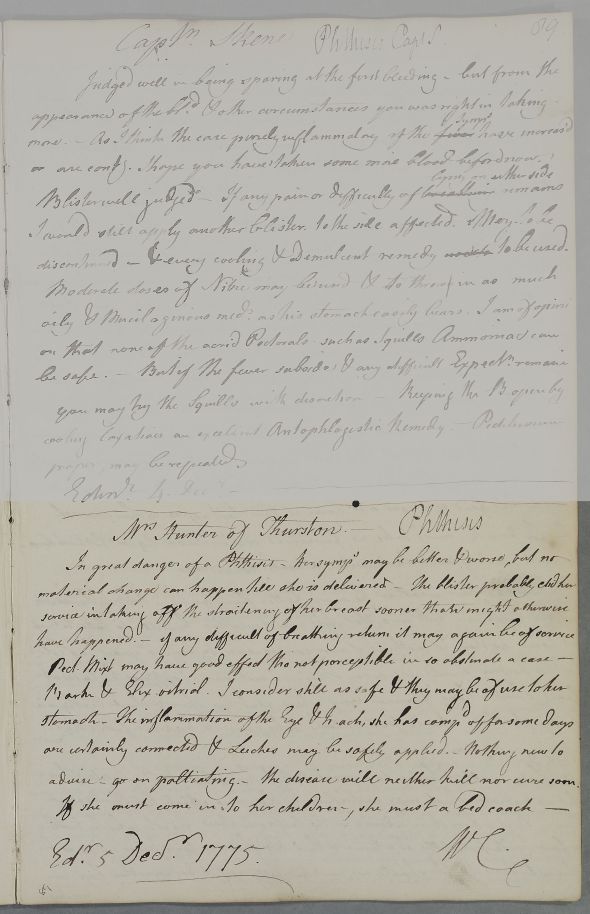 Captn. Skene Phthisis Capt S. 89
Judged well in being sparing at the first bleeding - but from the
appearance of the bld & other circumstances you was right in taking
more. - As I think the case purely inflammatory if the symps have increas'd
or are cont. I hope you have taken some more blood before now.
Blister well judged - If any pain or difficulty of lying on either side remains
I would still apply another blister to the side affected. to be
discontinued - & every cooling & Demulcent remedy to be used.
Moderate doses of Nitre may be used & to throw in as much
oily & Mucilaginous med: as his stomach easily bears. I am of opini
on that none of the acrid Pectorals such as Squills Ammoniac can
be safe. - But if the fever subsides & any difficult Expectn remain
you may try the Squills with discretion - Keeping the B open by
cooling laxatives an excellent Antiphlogistic Remedy - Pediluvium
proper may be repeated
Edinr. 4 Decr -
Mrs Hunter of Thurston. - Phthisis
In great danger of a Phthisis - her symps may be better & worse, but no
material change can happen till she is delivered - The blister probably did her
service in taking off the straitening of her breast sooner than might otherwise
have happened. - if any difficult of breathing return it may again be of service
Pect. Mixt may have good effect tho not perceptible in so obstinate a case -
Bark & Elix vitriol. I consider still as safe & they may be of use to her
stomach - The inflammation of the Eye & h-ach, she has comp'd off for some days
are certainly connected & Leeches may be safely applied - Nothing new to
advise - go on palliating - the disease will neither kill nor cure soon.
If she must come in to her children, she must a bed coach -
Edr. 5 Decr. 1775. WC.